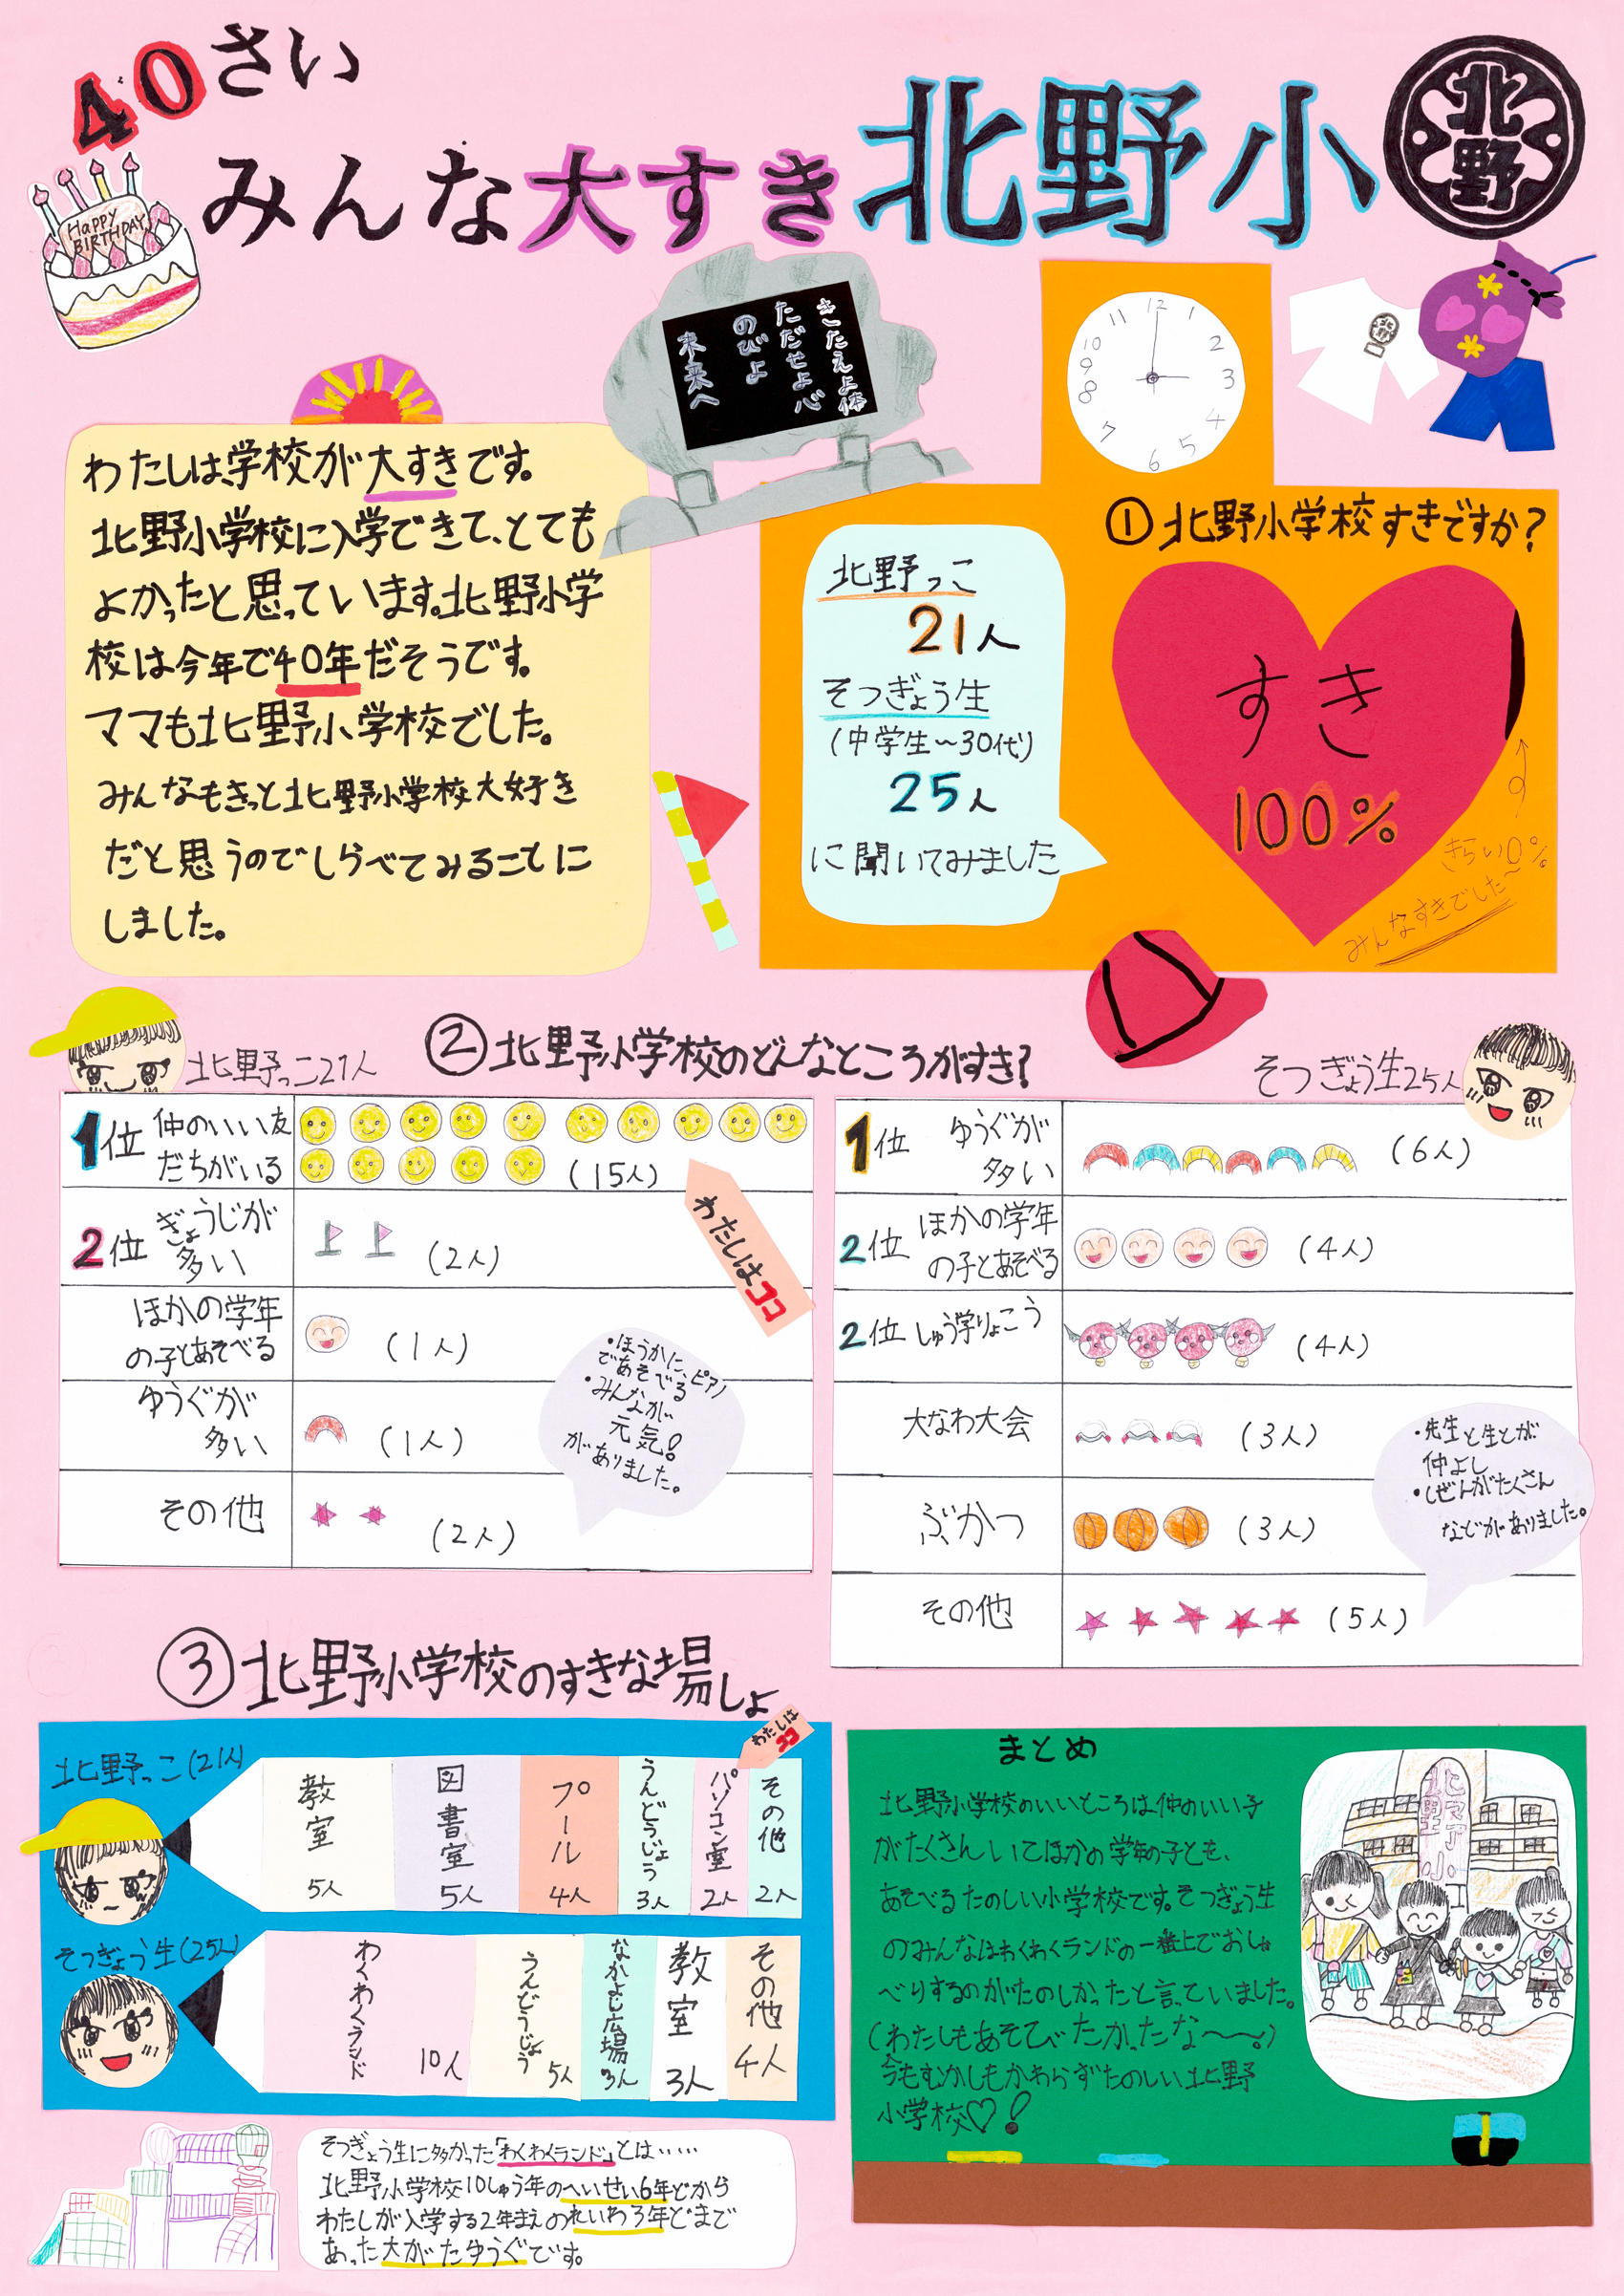 40さい
みんな大すき北野小
北野
HAPPY
BIRTHDAY
きたえよ体
ただせよ心
のびよ
未来へ
12
1
2
3
4
5
6
7
8
9
10
11
わたしは、学校が大すきです。
北野小学校に入学できて、とても
よかったと思っています。北野小学
校は今年で40年だそうです。
ママも北野小学校でした。
みんなもきっと北野小学校大好き
だと思うのでしらべてみることに
しました。
①北野小学校すきですか?
北野っこ
21人
そつぎょう生
(中学生〜30代)
25人
に聞いてみました
すき
100%
きらい0%
みんなすきでした〜
②北野小学校のどんなところがすき?
北野っこ21人
1位 仲のいい友
だちがいる
(15人)
2位 ぎょうじが
多い
(2人)
ほかの学年
の子とあそべる
(1人)
ゆうぐが
多い
(1人)
その他
(2人)
わたしはココ
・ほうかに、ピアノ
であそべる
・みんなが
元気!
がありました。
そつぎょう生25人
1位 ゆうぐが
多い
(6人)
2位 ほかの学年
の子とあそべる
(4人)
2位 しゅう学りょこう
(4人)
大なわ大会
(3人)
ぶかつ
(3人)
その他
(5人)
・先生と生とが
仲よし
・しぜんがたくさん
などがありました。
③北野小学校のすきな場しょ
わたしは
ココ
北野っこ(21人)
教室
5人
図書室
5人
プール
4人
うんどうじょう
3人
パソコン室
2人
その他
2人
そつぎょう生(25人)
わくわくランド
10人
うんどうじょう
5人
なかよし広場
3人
教室
3人
その他
4人
そつぎょう生に多かった「わくわくランド」とは……
北野小学校10しゅう年のへいせい6年どから
わたしが入学する2年まえのれいわ3年どまで
あった大がたゆうぐです。
まとめ
北野小学校のいいところは仲のいい子
がたくさんいてほかの学年の子とも、
あそべるたのしい小学校です。そつぎょう生
のみんなはわくわくランドの一番上でおしゃ
べりするのがたのしかったと言っていました。
(わたしもあそびたかったな〜〜。)
今もむかしもかわらずたのしい北野
小学校♡!
北野小